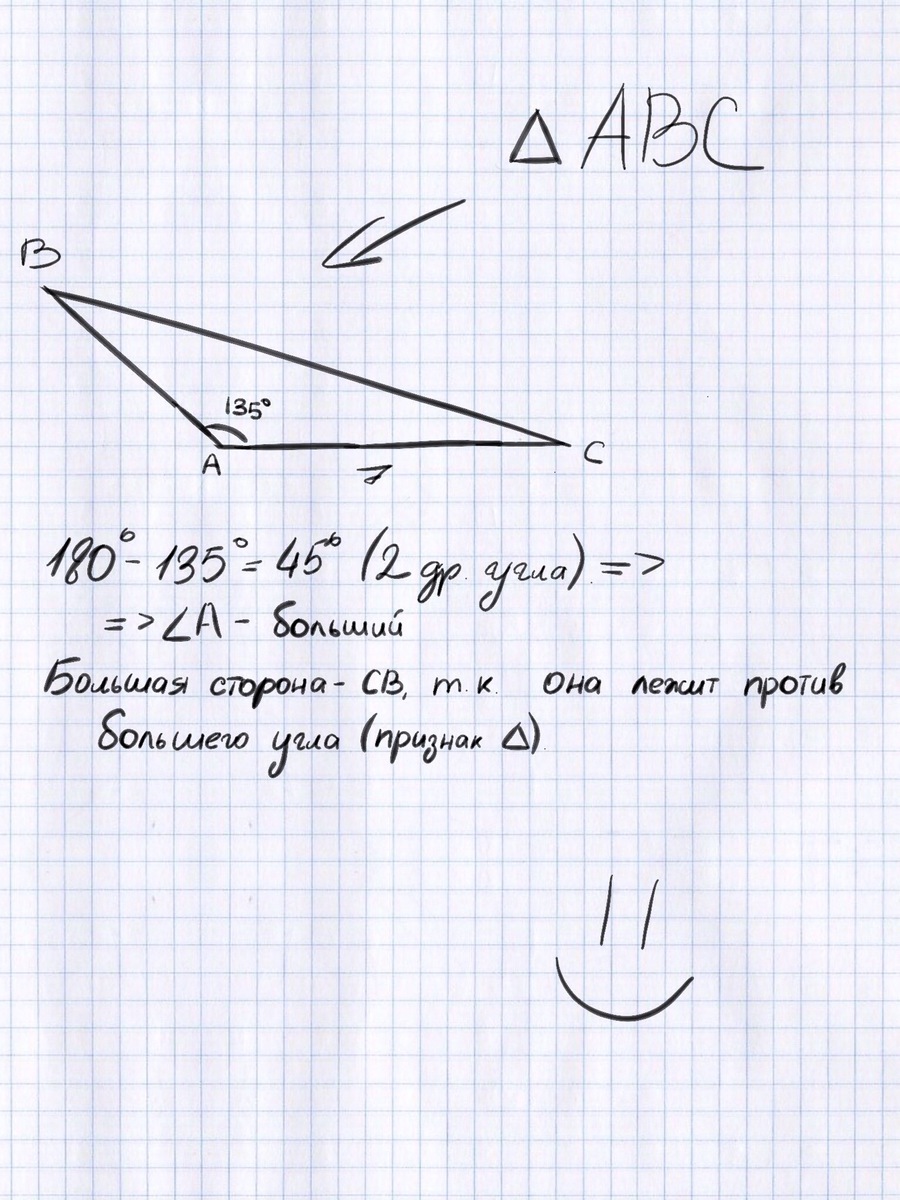 △ABC
B
135°
A
C
7
180° - 135° = 45° (2 др. угла). =>
=> ∠A - больший
Большая сторона - CB, т.к. она лежит против
большего угла (признак △).